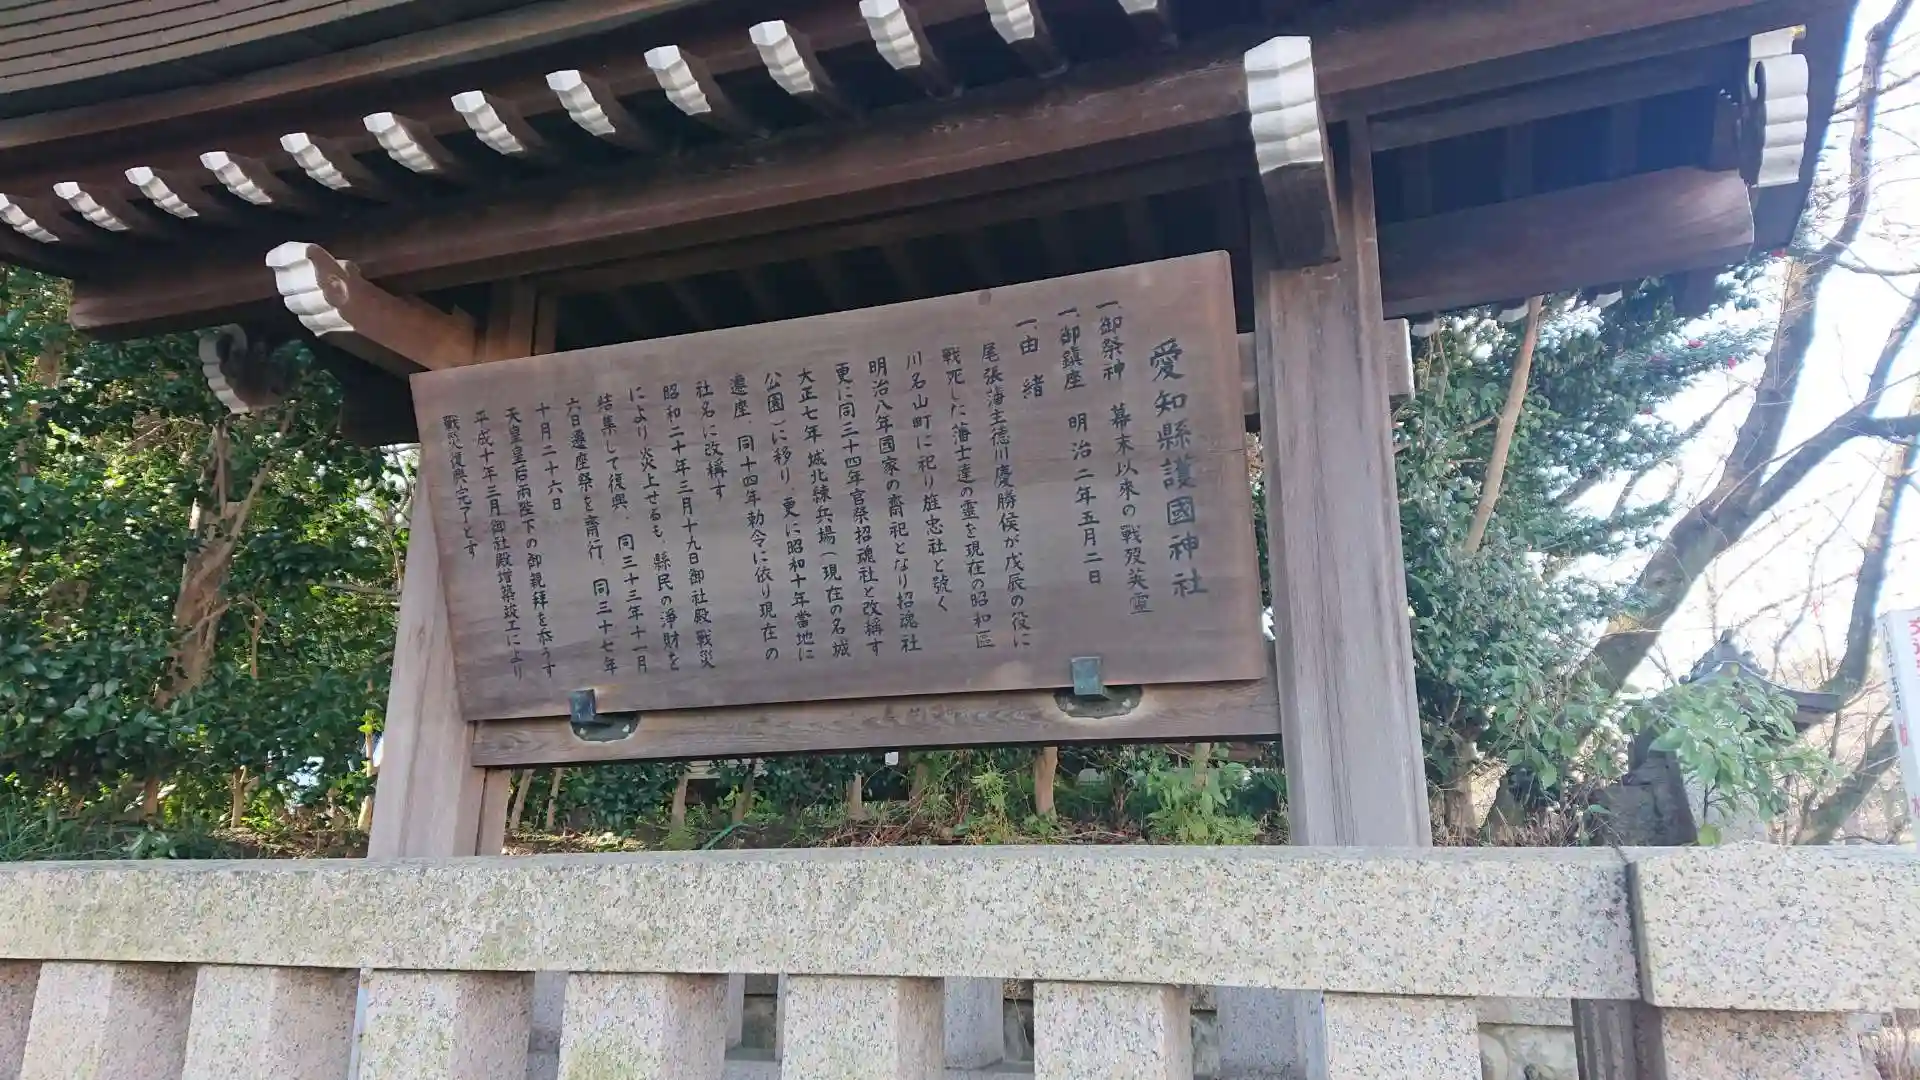 愛知縣護國神社
一、御祭神　幕末以來の戰歿英霊
一、御鎮座　明治二年五月二日
一、由　緒
尾張藩主徳川慶勝侯が戊辰の役に
戦死した藩士達の霊を現在の昭和區
川名山町に祀り旌忠社と號く
明治八年國家の齋祀となり招魂社
更に同三十四年官祭招魂社と改稱す
大正七年城北練兵場（現在の名城
公園）に移り、更に昭和十年當地に
遷座、同十四年勅令に依り現在の
社名に改稱す
昭和二十年三月十九日御社殿戰災
により炎上せるも、縣民の淨財を
結集して復興、同三十三年十一月
六日遷座祭を齋行、同三十七年
十月二十六日
天皇皇后両陛下の御親拜を忝うす
平成十年三月御社殿増築竣工により
戰災復興完了とす